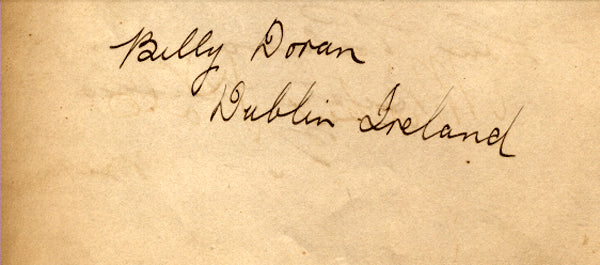 Billy Doran
Dublin Ireland